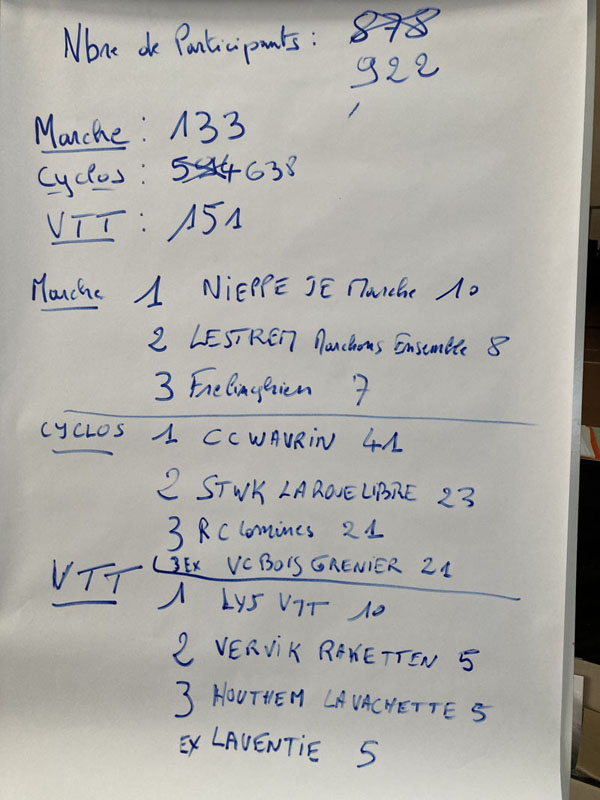 Nbre de Participants : 878
922
Marche : 133
Cyclos : 594 638
VTT : 151
Marche 1 NIEPPE JE Marche 10
2 LESTREM Marchons Ensemble 8
3 Frelinghien 7
CYCLOS 1 CC WAVRIN 41
2 STWK LA ROUE LIBRE 23
3 RC Comines 21
3 EX VC BOIS GRENIER 21
VTT
1 LYS VTT 10
2 VERVIK RAKETTEN 5
3 HOUTHEM LAVACHETTE 5
EX LAVENTIE 5